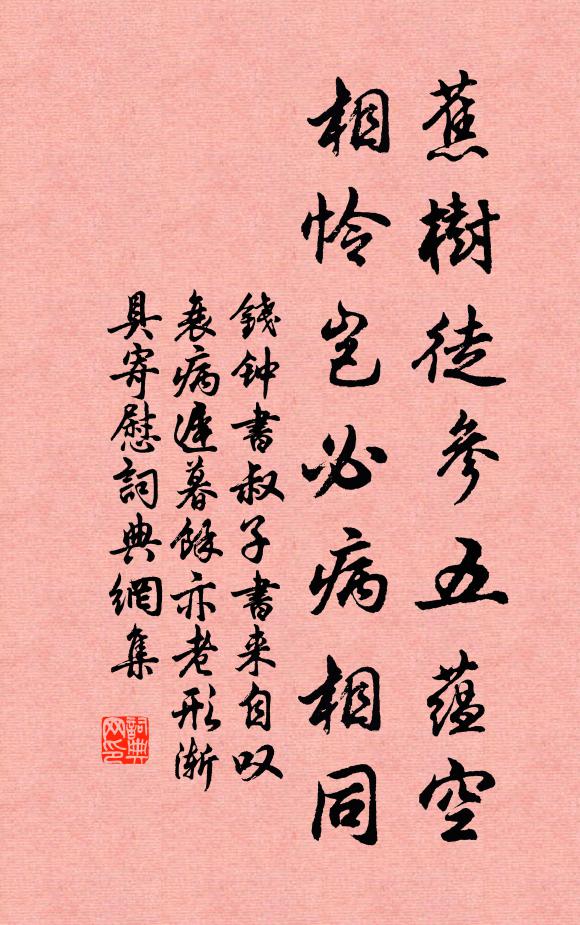 蕉樹徒參五蘊空
相怜豈必病相同
錢钟書叔子書来自叹
衰病遲暮餘亦老形漸
具寄慰詞典網集
詞典
网印